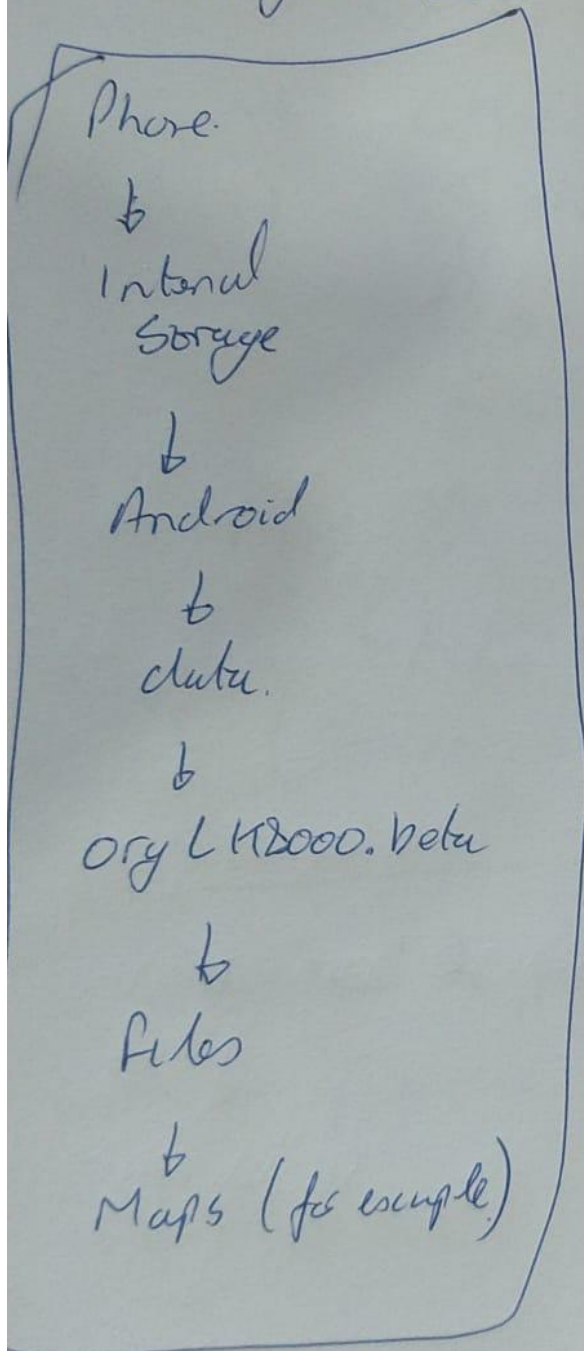 Phone.
↓
Internal
Storage
↓
Android
↓
data.
↓
org LK8000.beta
↓
Files
↓
Maps (for example)